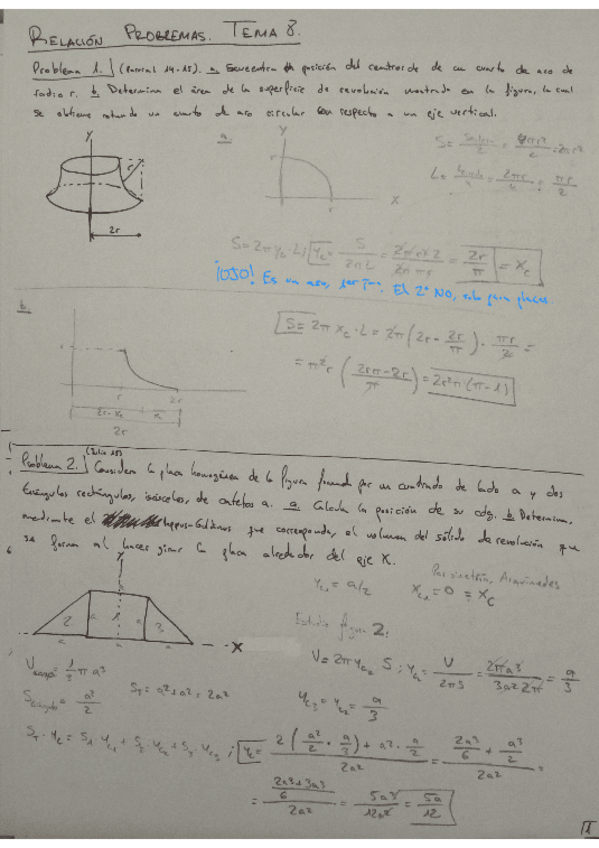 RELACIÓN PROBLEMAS. TEMA 8.
Problema 1. (Parcial 14-15). a. Encuentra posición del centroide de un cuarto de aro de
radio r. b. Determina el área de la superficie de revolución mostrada en la figura, la cual
se obtiene rotando un cuarto de aro circular con respecto a un eje vertical.
Y
r
2r
a.
Y
r
r
X
S = = 4πr²/2 = 2πr²
L = = 2πr/4 = πr/2
S = 2π y_c · L ; y_c = S/2πL = = 2r/π = x_c
¡OJO! Es un aro, El 2º NO, solo para placas
b.
r
2r
2r - x_c
2r
S = 2π x_c · L = 2π (2r - 2r/π) · πr/2 =
= π²r (2rπ - 2r/π) = 2r²π (π - 1)
Problema 2. (Julio 15) Considera la placa homogénea de la figura formada por un cuadrado de lado a y dos
triángulos rectángulos, isósceles, de catetos a. a. Calcula la posición de su cdg. b. Determina,
mediante el Pappus-Guldinus que corresponda, el volumen del sólido de revolución que
se forma al hacer girar la placa alrededor del eje X.
Y
2
1
3
a
a
a
a
a
X
y_c1 = a/2
Por simetría, Arquímedes
x_c1 = 0 = x_c
Estudio figura 2:
V = 2π y_c2 S ; y_c2 = V/2πS = 2πa³/3a²2π = a/3
y_c3 = y_c2 = a/3
V = 1/3 π a³
S = a²/2
S_T = a² + a² = 2a²
S_T · y_c = S_1 · y_c1 + S_2 · y_c2 + S_3 · y_c3 ; y_c = 2(a²/2 · a/3) + a² · a/2 / 2a² = 2a³/6 + a³/2 / 2a² =
= 2a³ + 3a³/6 / 2a² = 5a³/12a² = 5a/12
1